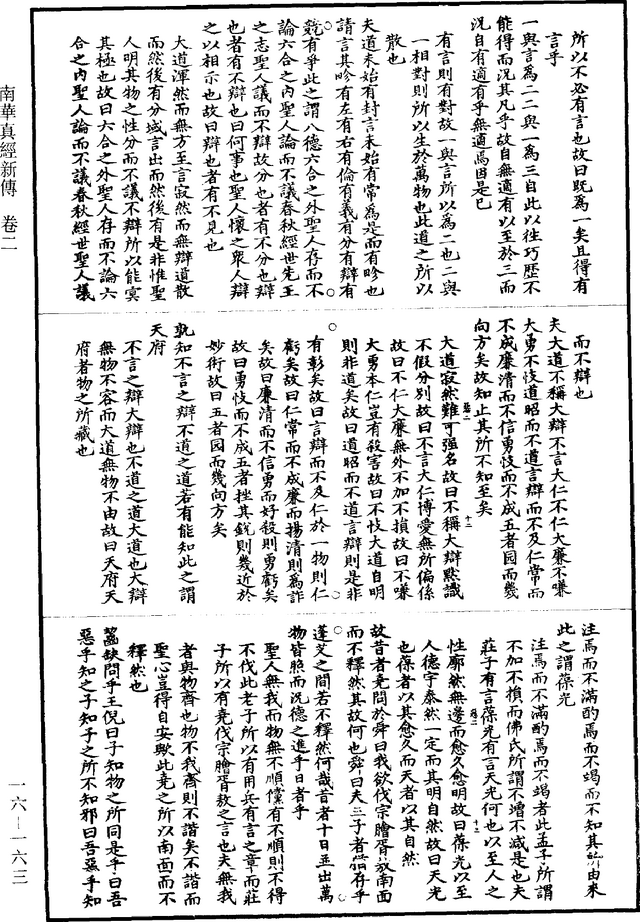 所以不必有言也故曰既為一矣且得有
言乎
一與言為二二與一為三自此以往巧歷不
能得而況其凡乎故自無適有以至於三而
況自有適有乎無適焉因是已
有言則有對故一與言所以為二也二與
一相對則所以生於萬物也此道之所以
散也
夫道未始有封言未始有常為是而有畛也
請言其畛有左有右有倫有義有分有辯有
競有爭此之謂八德六合之外聖人存而不
論六合之內聖人論而不議春秋經世先王
之志聖人議而不辯故分也者有不分也辯
也者有不辯也曰何事也聖人懷之衆人辯
之以相示也故曰辯也者有不見也
大道渾然而無方至言寂然而無辯道散
而然後有分域言出而然後有是非惟聖
人明其物之性分而不議不辯所以能㝠
其極也故曰六合之外聖人存而不論六
合之內聖人論而不議春秋經世聖人議
而不辯也
夫大道不稱大辯不言大仁不仁大廉不嗛
大勇不忮道昭而不道言辯而不及仁常而
不成廉清而不信勇忮而不成五者园而幾
向方矣故知止其所不知至矣
大道寂然難可强名故曰不稱大辯黙識
不假分別故曰不言大仁博愛無所偏係
故曰不仁大廉無外不加不損故曰不嗛
大勇本仁豈有殺害故曰不忮大道自明
則非道矣故曰道昭而不道言辯則是非
有彰矣故曰言辯而不及仁於一物則仁
虧矣故曰仁常而不成廉而揚清則為詐
矣故曰廉清而不信勇而好殺則勇虧矣
故曰勇忮而不成五者挫其銳則幾近於
妙術故曰五者园而幾向方矣
孰知不言之辯不道之道若有能知此之謂
天府
不言之辯大辯也不道之道大道也大辯
無物不容而大道無物不由故曰天府天
府者物之所藏也
注焉而不滿酌焉而不竭而不知其所由來
此之謂葆光
注焉而不滿酌焉而不竭者此孟子所謂
不加不損而佛氏所謂不增不減是也夫
莊子有言葆光有言天光何也以至人之
性廓然無邊而愈久愈明故曰葆光以至
人德宇泰然一定而其明自然故曰天光
也葆者以其愈久而天者以其自然
故昔者堯問於舜曰我欲伐宗膾胥敖南面
而不釋然其故何也舜曰夫三子者猶存乎
蓬艾之間若不釋然何哉昔者十日並出萬
物皆照而況德之進乎日者乎
聖人無我而物無不順儻有不順則不得
不伐此老子所以有用兵有言之章而莊
子所以有堯伐宗膾胥敖之言也夫無我
者與物齊也物不我齊則不諧矣不諧而
聖心豈得自安歟此堯之所以南面而不
釋然也
齧缺問乎王倪曰子知物之所同是乎曰吾
惡乎知之子知子之所不知邪曰吾惡乎知
南華真經新傳 卷二
一六—一六三